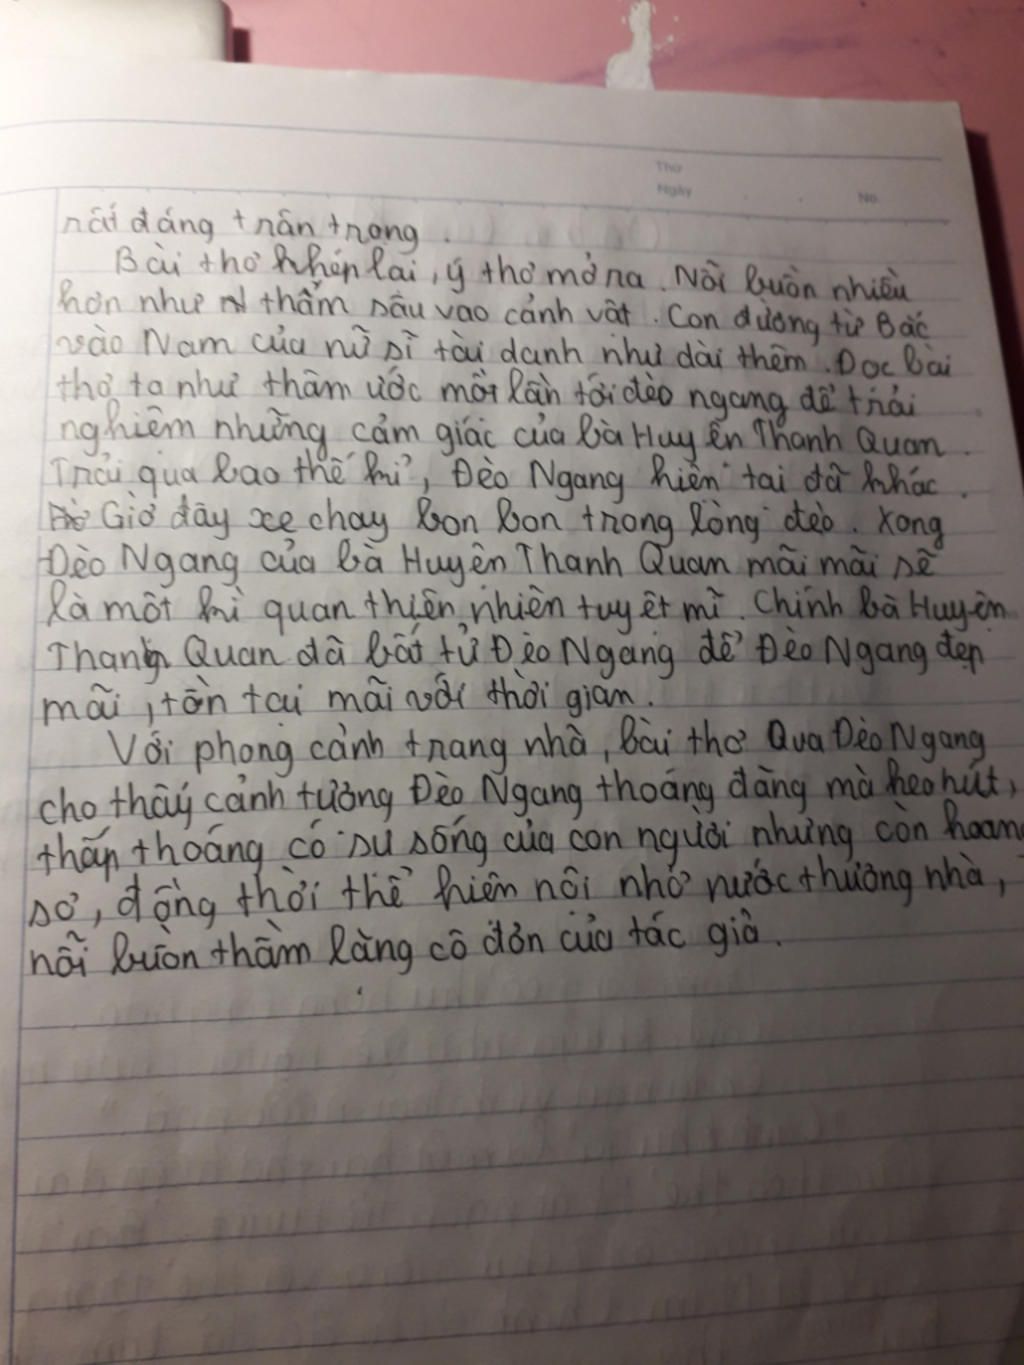 Thứ
Ngày
No.
rất đáng trân trọng.
Bài thơ khép lại, ý thơ mở ra. Nỗi buồn nhiều
hơn như thấm sâu vào cảnh vật. Con đường từ Bắc
vào Nam của nữ sĩ tài danh như dài thêm. Đọc bài
thơ ta như thầm ước một lần tới đèo ngang để trải
nghiệm những cảm giác của bà Huyện Thanh Quan.
Trải qua bao thế kỉ, Đèo Ngang hiện tại đã khác.
Giờ đây xe chạy bon bon trong lòng đèo. Xong
Đèo Ngang của bà Huyện Thanh Quan mãi mãi sẽ
là một kì quan thiên nhiên tuyệt mĩ. Chính bà Huyện
Thanh Quan đã bất tử Đèo Ngang để Đèo Ngang đẹp
mãi, tồn tại mãi với thời gian.
Với phong cảnh trang nhã, bài thơ Qua Đèo Ngang
cho thấy cảnh tượng Đèo Ngang thoáng đãng mà heo hút,
thấp thoáng có sự sống của con người nhưng còn hoang
sơ, đồng thời thể hiện nỗi nhớ nước thương nhà,
nỗi buồn thầm lặng cô đơn của tác giả.